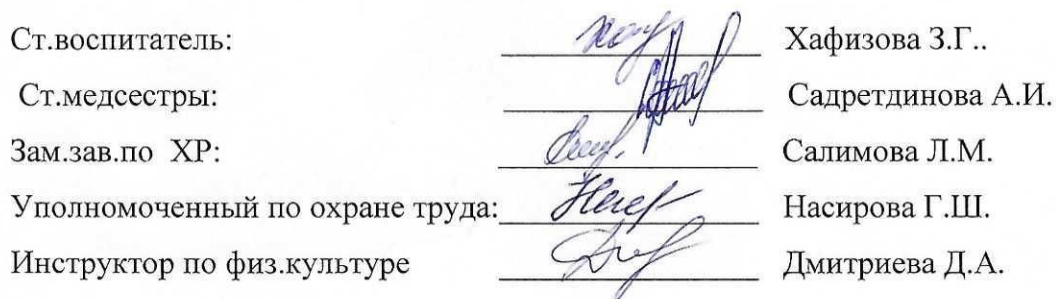 Ст.воспитатель: Хафизова З.Г..
Ст.медсестры: Садретдинова А.И.
Зам.зав.по ХР: Салимова Л.М.
Уполномоченный по охране труда: Насирова Г.Ш.
Инструктор по физ.культуре Дмитриева Д.А.